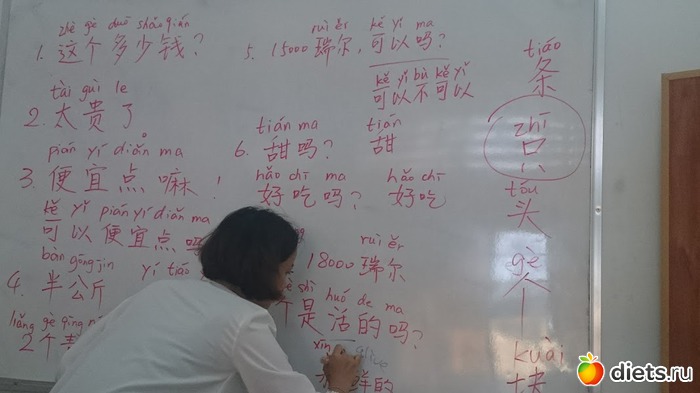 zhè gè duō shǎo qián
1. 这个多少钱？
tài guì le
2. 太贵了
pián yí diǎn ma
3. 便宜点嘛！
kě yǐ pián yí diǎn ma
可以便宜点吗
bàn gōng jīn
4. 半公斤
yí tiáo
liǎng gè qīng
2个
ruì ěr kě yǐ ma
5. 15000 瑞尔，可以吗？
kě yǐ bù kě yǐ
可以不可以
tián ma tián
6. 甜吗？ 甜
hǎo chī ma hǎo chī
好吃吗？ 好吃
ruì ěr
18000 瑞尔
shì huó de ma
个是活的吗？
xīn
鲜的
tiáo
条
zhī
只
tóu
头
gè
个
kuài
块
diets.ru